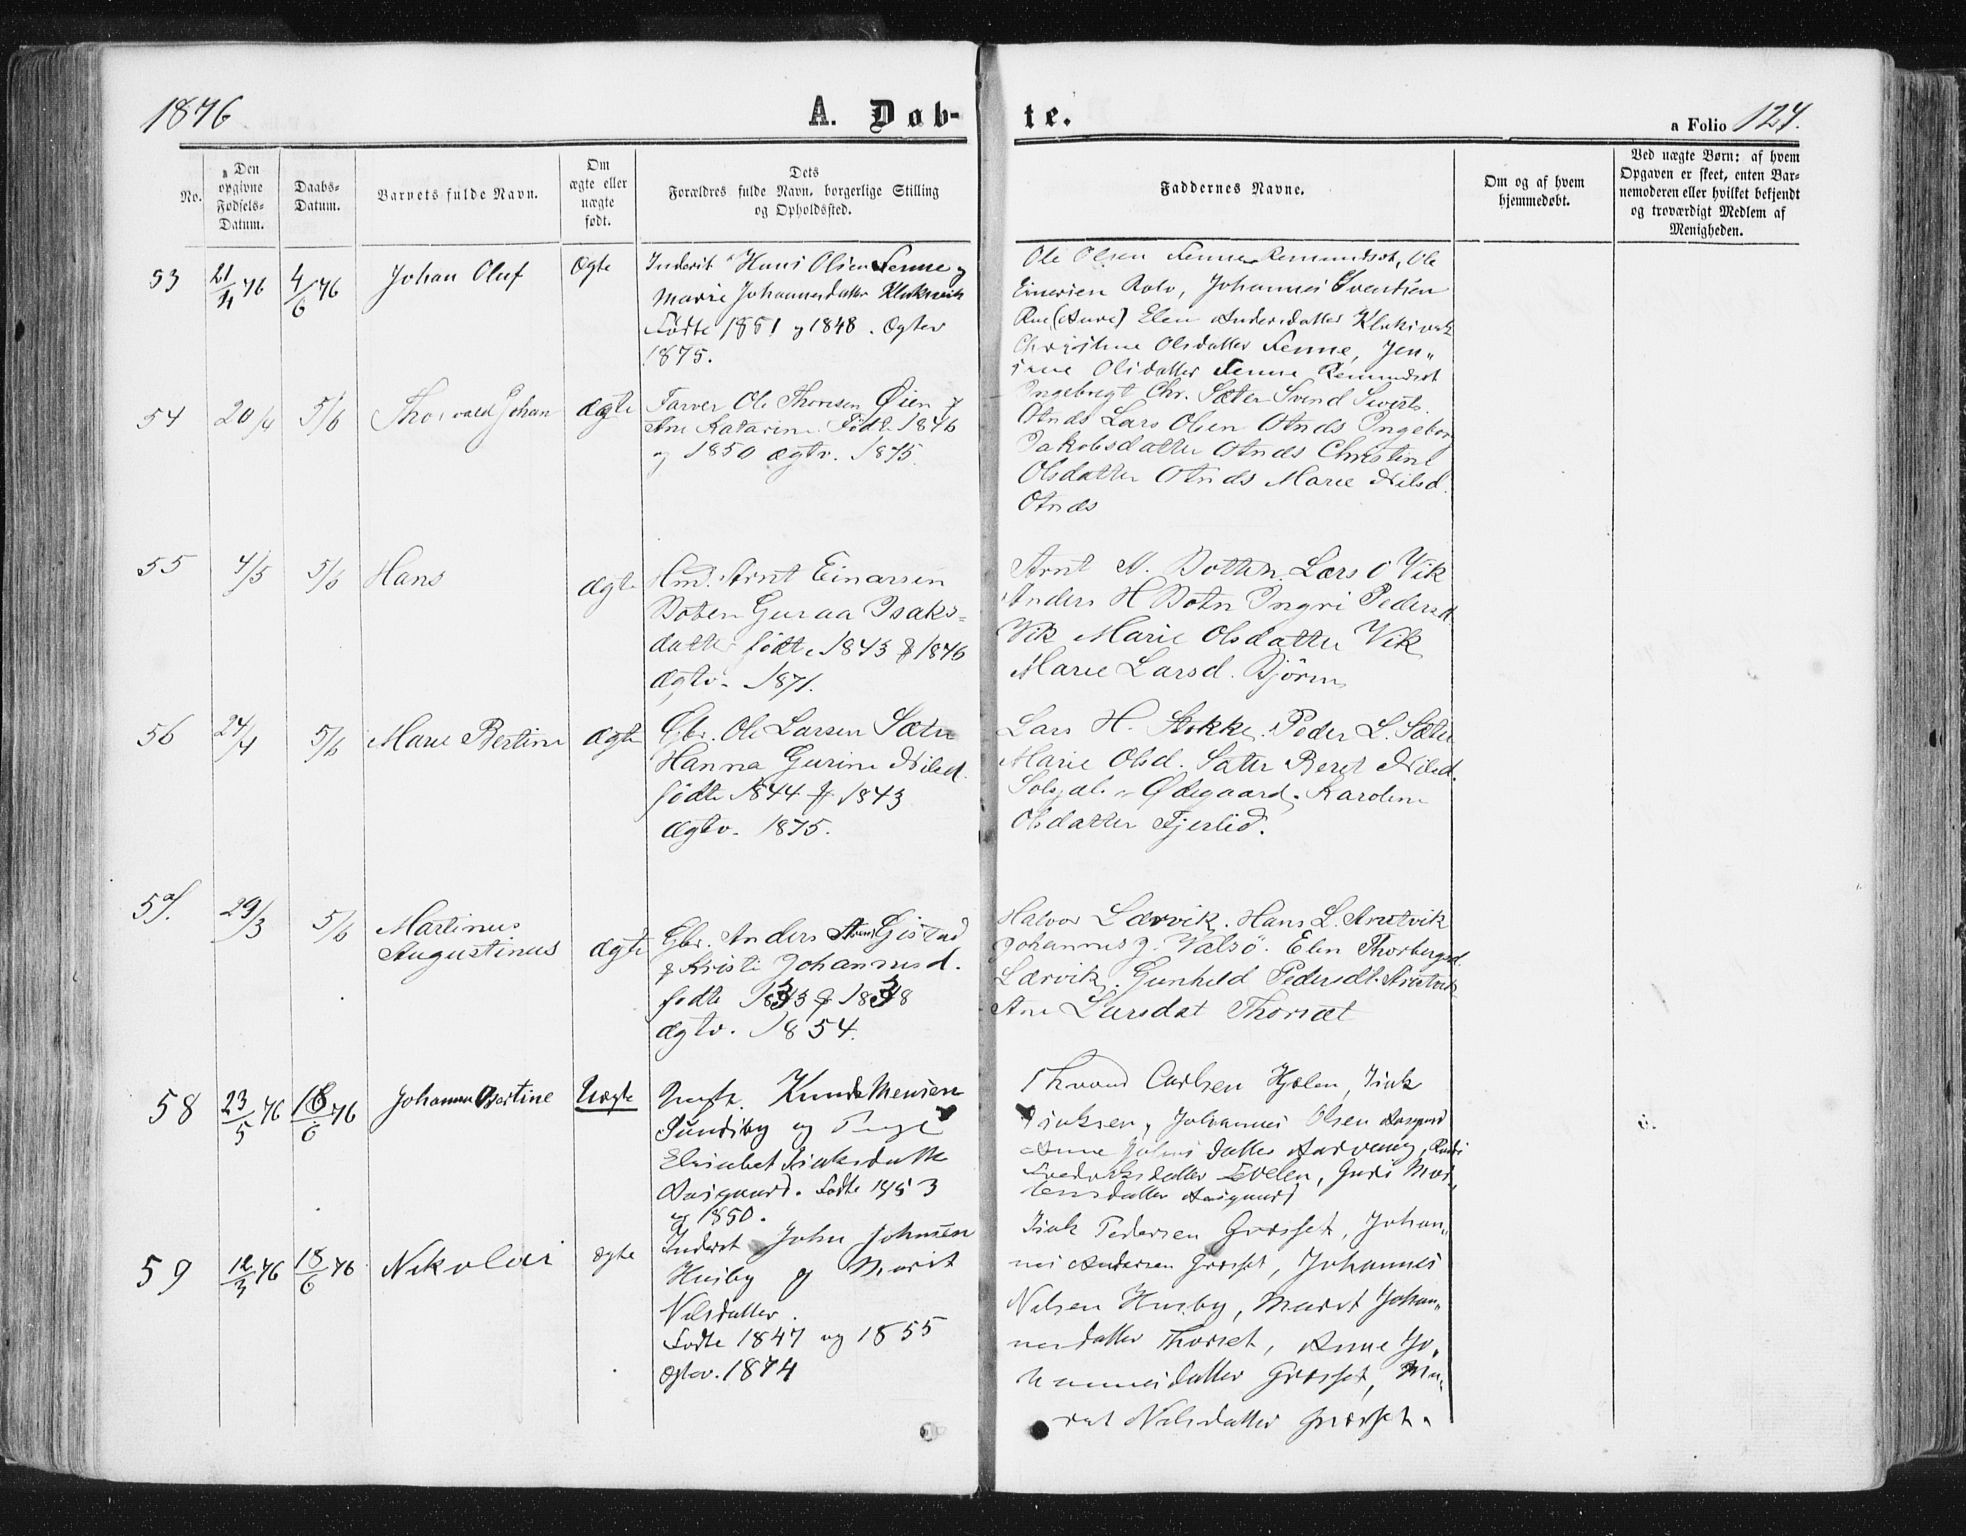 1876
A. Døb-
te.
a Folio 127.
No.
a Den opgivne Fødsels-Datum.
Daabs-Datum.
Barnets fulde Navn.
Om ægte eller uægte født.
Dets Forældres fulde Navn, borgerlige Stilling og Opholdssted.
Faddernes Navne.
Om og af hvem hjemmedøbt.
Ved uægte Børn: af hvem Opgaven er skeet, enten Barnemoderen eller hvilket bekjendt og troværdigt Medlem af Menigheden.
53
21/4 76
4/6 76
Johan Oluf
Ægte
Inderst Hans Olsen Fenne og
Marie Johannesdatter Kluksvik
Fødte 1851 og 1848. Ægtev
1875.
Ole Olsen Fenne Remundset, Ole
Einersen Rolv, Johannes Sventsen
Rue (Aure) Elen Andersdatter Kluksvik
Christine Olsdatter Fenne, Jen„
sine Olsdatter Fenne Remundset
54
20/4
5/6
Thorvald Johan
Ægte
Farver Ole Thoresen Øien &
Ane Katarine Født 1846
og 1850 ægtv. 1875.
Ingebregt Chr. Sæter Svend Siverts.
Otnes Lars Olsen Otnes Ingebor
Jakobsdatter Otnes Christine
Olsdatter Otnes Marie Nilsd.
Otnes
55
4/5
5/6
Hans
Ægte
Hmd. Arnt Einarsen
Boten Guraa Isaks=
datter fødte 1843 & 1846
Ægtv. 1871.
Arnt N. Botten Lars O Vik
Anders H Botn Ingri Pedersd.
Vik Marie Olsdatter Vik
Marie Larsd. Bjøren
56
24/4
5/6
Marie Bertine
Ægte
Gbr. Ole Larsen Sæter
Hanna Gurine Nilsd.
fødte 1844 & 1843
Ægtv. 1875.
Lars H. Stokke. Peder L. Sæter
Marie Olsd. Sæter Beret Nilsd.
Ødegaard. Karoline
Olsdatter Fjerlid.
57.
29/3
5/6
Martinus
Augustinus
Ægte
Gbr. Anders Gistad
& Kristi Johannesd.
fødte 1833 & 1838
ægtv. 1854.
Halvor Lærvik. Hans L. Arntvik
Johannes J. Valsø. Elen Thorbergsd.
Lærvik. Gunhild Pedersdt. Arntvik
Ane Larsdat Thorsæt
58
23/5 76
18/6 76
Johanna Bertine
Uægte
Ungk. Knud Mensen
Sundsby og Pige
Elisabet Isaksdatter
Aasgaard. Fødte 1853
og 1850.
Thrond Carlsen Hjelen, Isak
Isaksen, Johannes Olsen Aasgaard
Anne Johnsdatter Aarvaag, Randi
Fredriksdatter Levelen, Guri Mor„
tensdatter Aasgaard
59
12/3 76
18/6 76
Nikolai
Ægte
Inderst John Johnsen
Husby og Marit
Nilsdatter.
Fødte 1847 og 1855
Ægtev. 1874
Isak Pedersen Grøsset, Johan„
nes Andersen Grøsset, Johannes
Nilsen Husby, Marit Johan„
nesdatter Thorset, Anne Jo„
hannesdatter Grøsset, Ma„
rit Nilsdatter Grøsset.